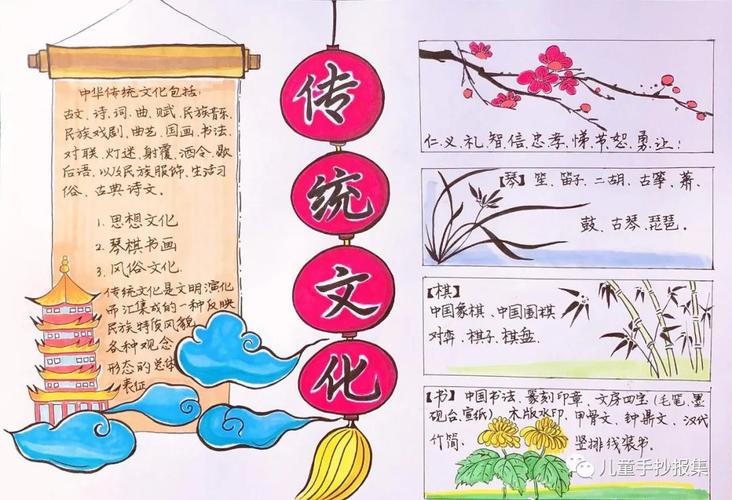 中华传统文化包括:
古文、诗、词、曲、赋、民族音乐、
民族戏剧、曲艺、国画、书法、
对联、灯迷、射覆、酒令、歇
后语、以及民族服饰、生活习
俗、古典诗文。
1. 思想文化
2. 琴棋书画
3. 风俗文化.
传统文化是文明演化
而江集成的一种反映
民族特质风貌
各种观念
形态的总体
表征
传
统
文
化
仁、义、礼、智、信、忠、孝、悌、节、恕、勇、让;
【琴】笙、笛子、二胡、古筝、萧、
鼓、古琴、琵琶。
【棋】
中国象棋、中国围棋
对弈、棋子、棋盘、
【书】中国书法、篆刻印章、文房四宝(毛笔、墨
砚台、宣纸)、木版水印、甲骨文、钟鼎文、汉代
竹简、竖排线装书.
儿童手抄报集